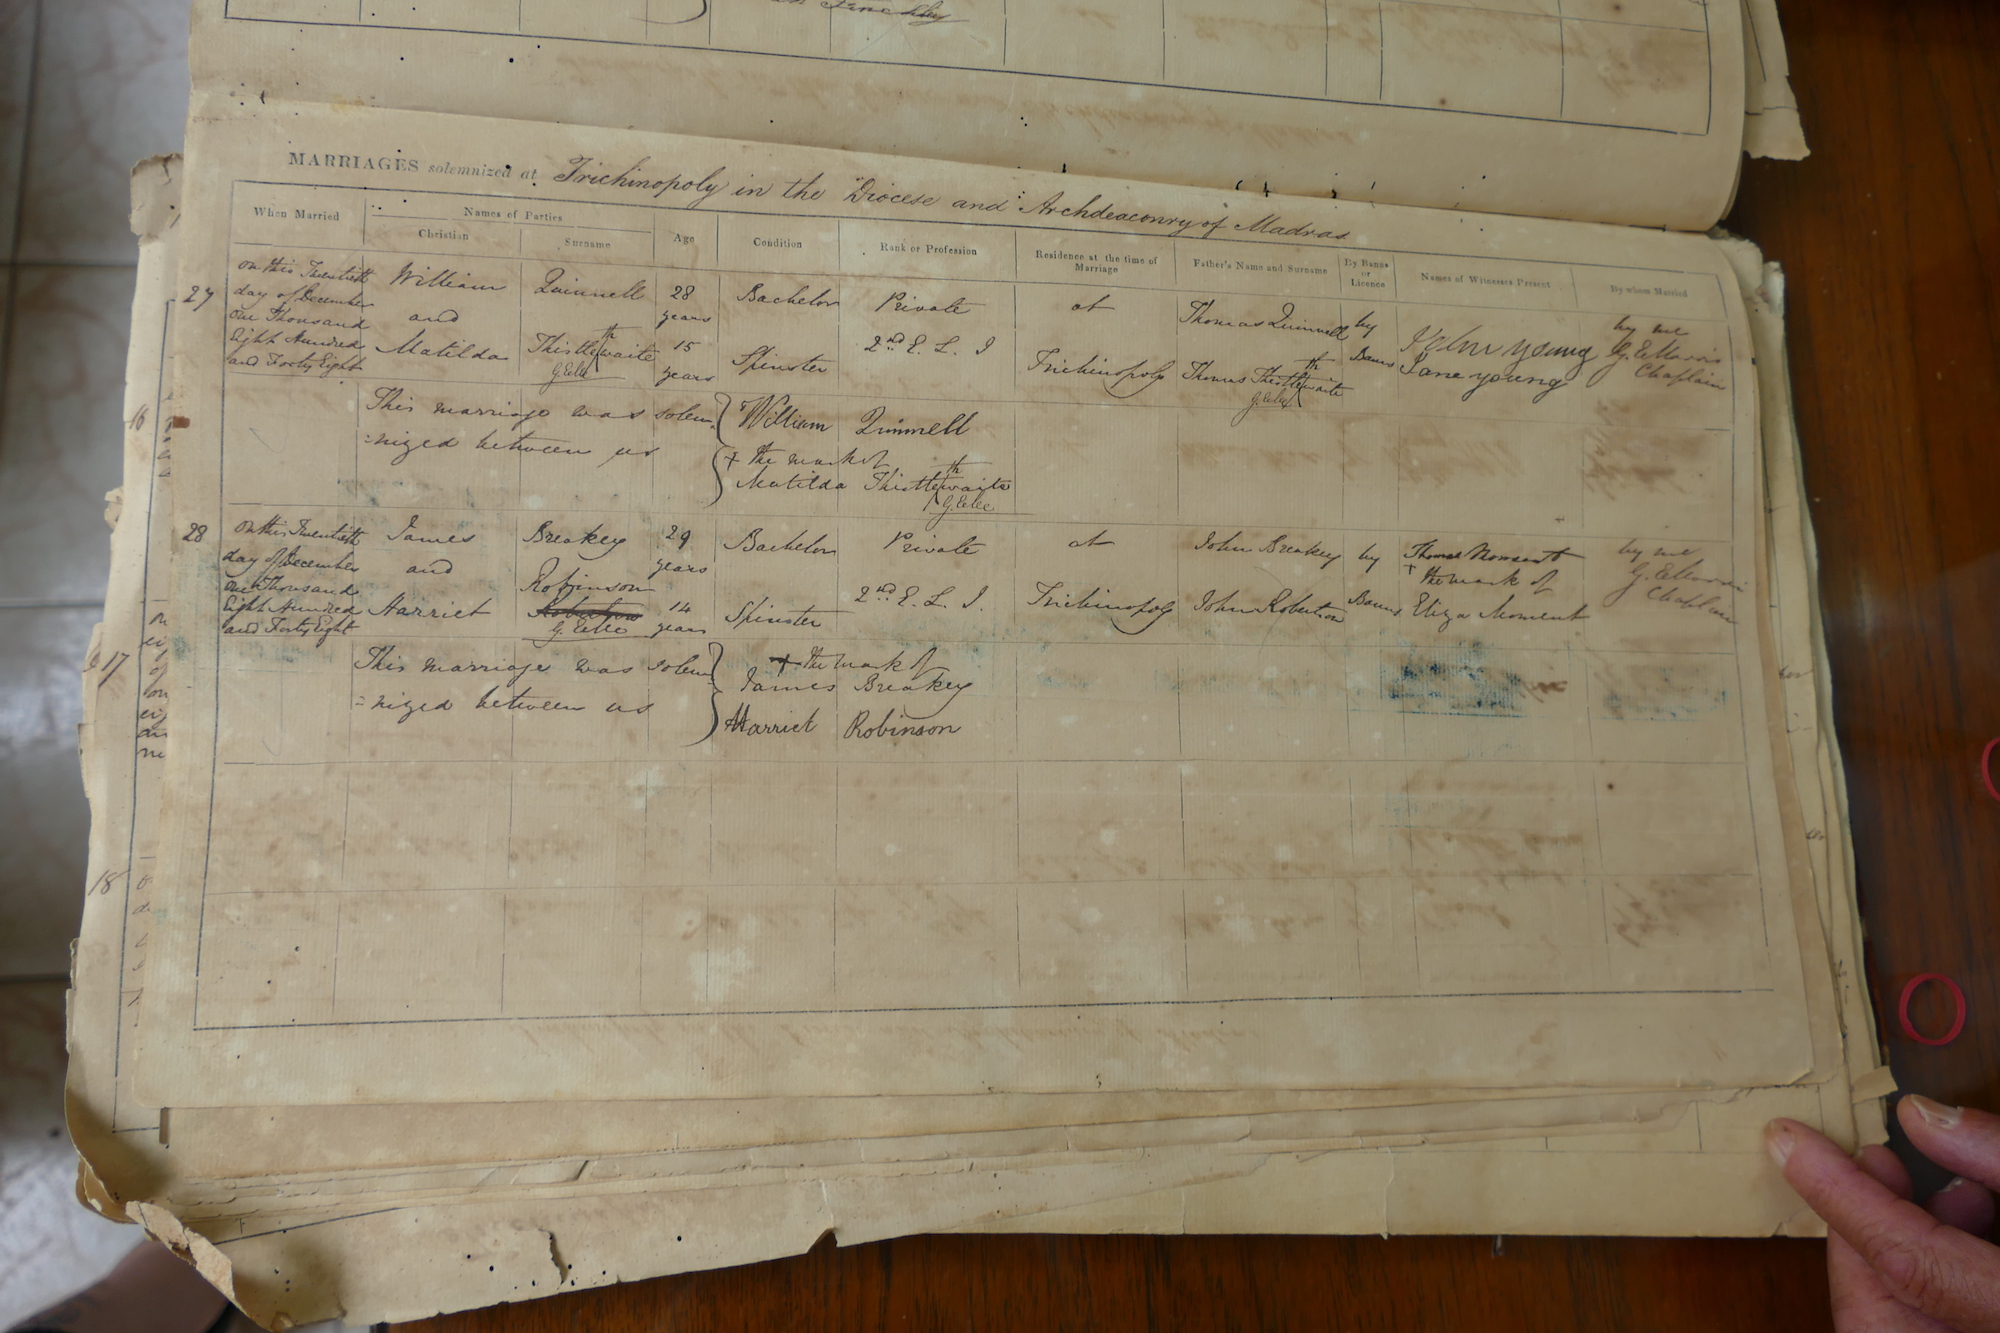 Finchley
MARRIAGES solemnized at Trichinopoly in the Diocese and Archdeaconry of Madras
When Married
Names of Parties
Christian
Surname
Age
Condition
Rank or Profession
Residence at the time of Marriage
Father's Name and Surname
By Banns or Licence
Names of Witnesses Present
By whom Married
27
on this Twentieth
day of December
one Thousand
Eight Hundred
and Forty Eight
William
and
Matilda
Quinnell
th
Thistlewaite
28
years
15
years
Bachelor
Spinster
Private
2nd E. L. I
at
Trichinopoly
Thomas Quinnell
th
Thomas Thistlewaite
by
Banns
John Young
Jane Young
by me
Chaplain
This marriage was solem-
=nized between us
William Quinnell
+ the mark of
th
Matilda Thistlewaite
28
on this Twentieth
day of December
one Thousand
Eight Hundred
and Forty Eight
James
and
Harriet
Breakey
Robinson
29
years
14
years
Bachelor
Spinster
Private
2nd E. L. I.
at
Trichinopoly
John Breakey
John Robertson
by
Banns
Thomas Moment
+ the mark of
Eliza Moment
by me
Chaplain
This marriage was solem-
=nized between us
+ the mark of
James Breakey
Harriet Robinson
16
17
18